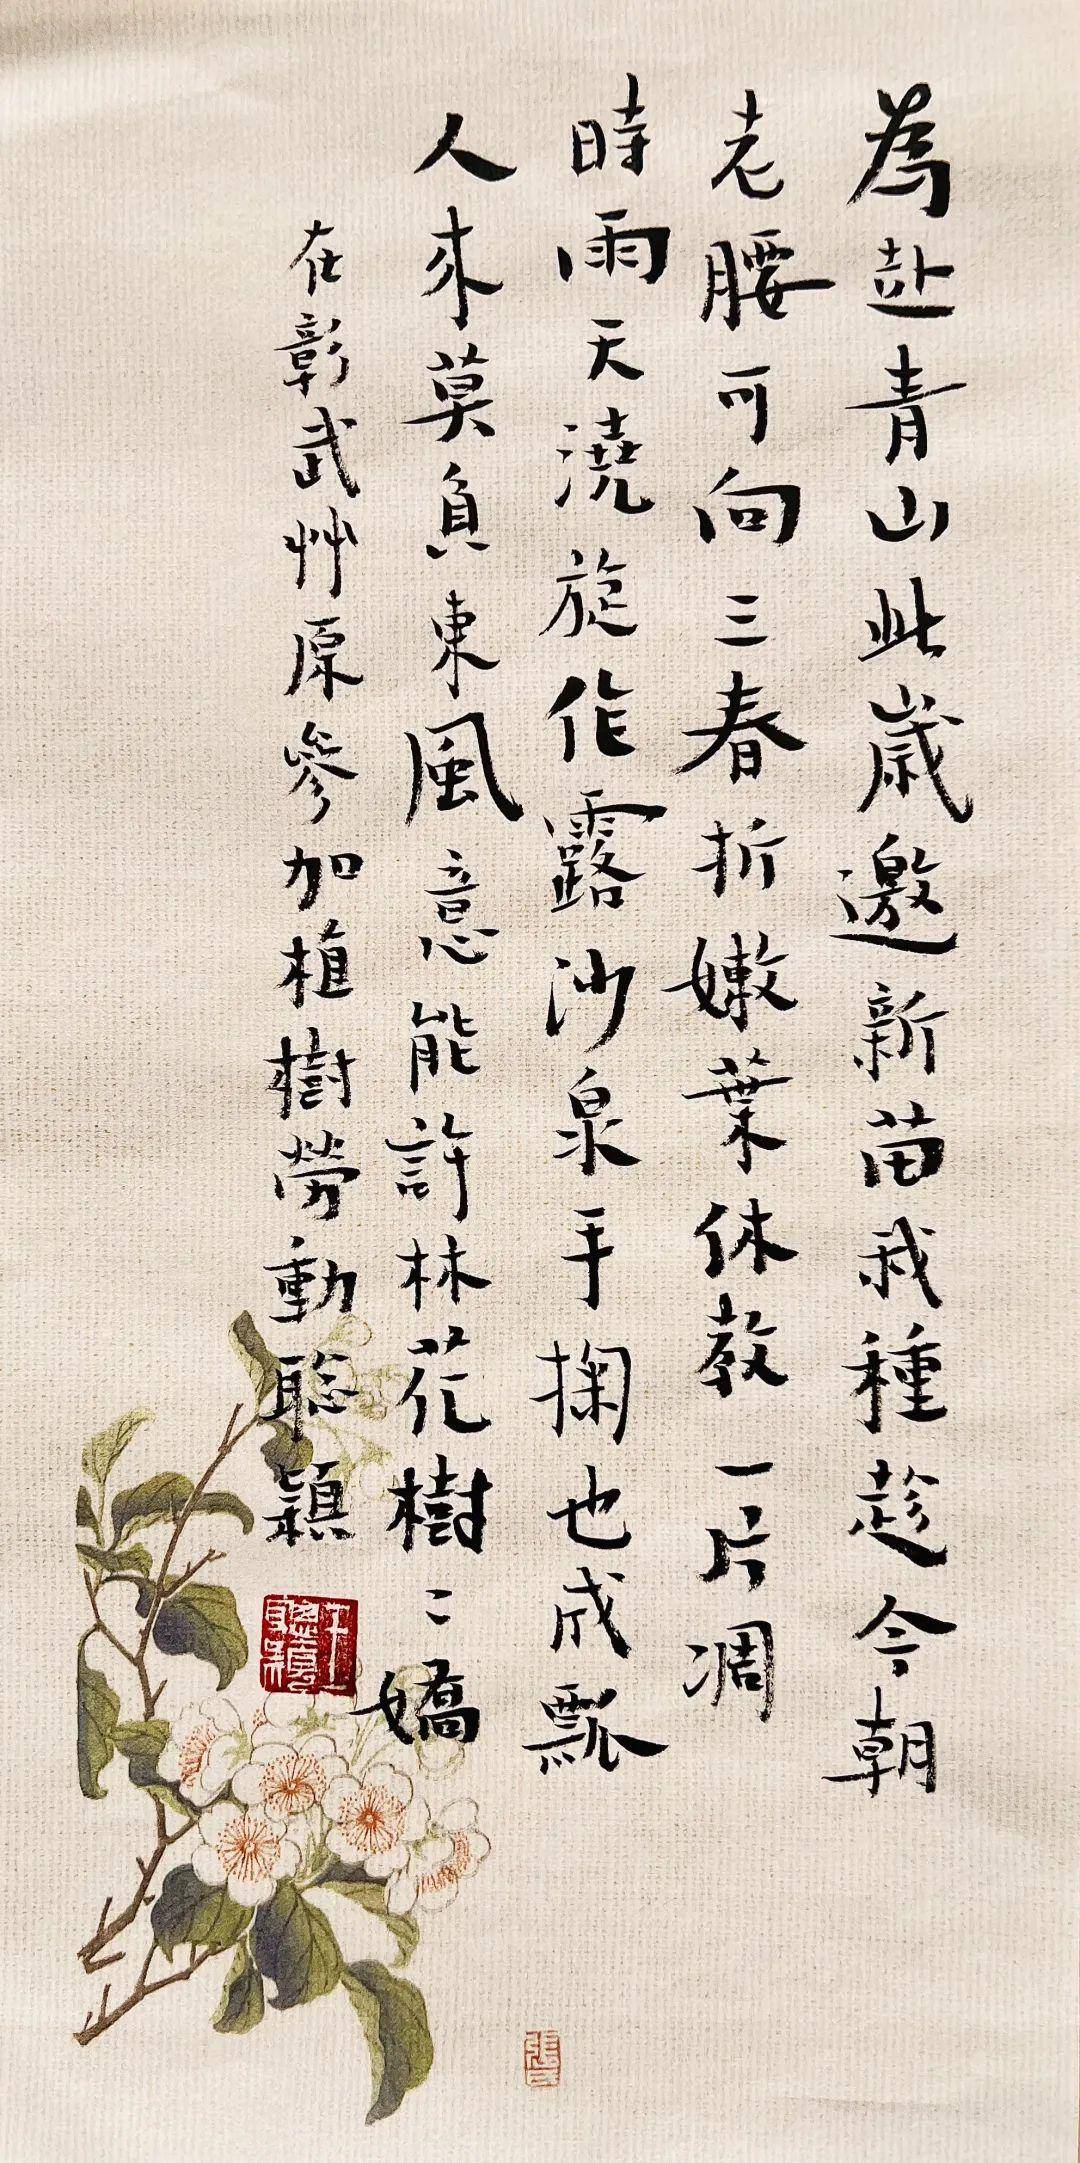 為赴青山此歲邀新苗我種趁今朝
老腰可向三春折嫩葉休教一片凋
時雨天澆旋作露沙泉手掬也成瓢
人來莫負東風意能許林花樹〻嬌
在彰武艸原參加植樹勞動聡穎